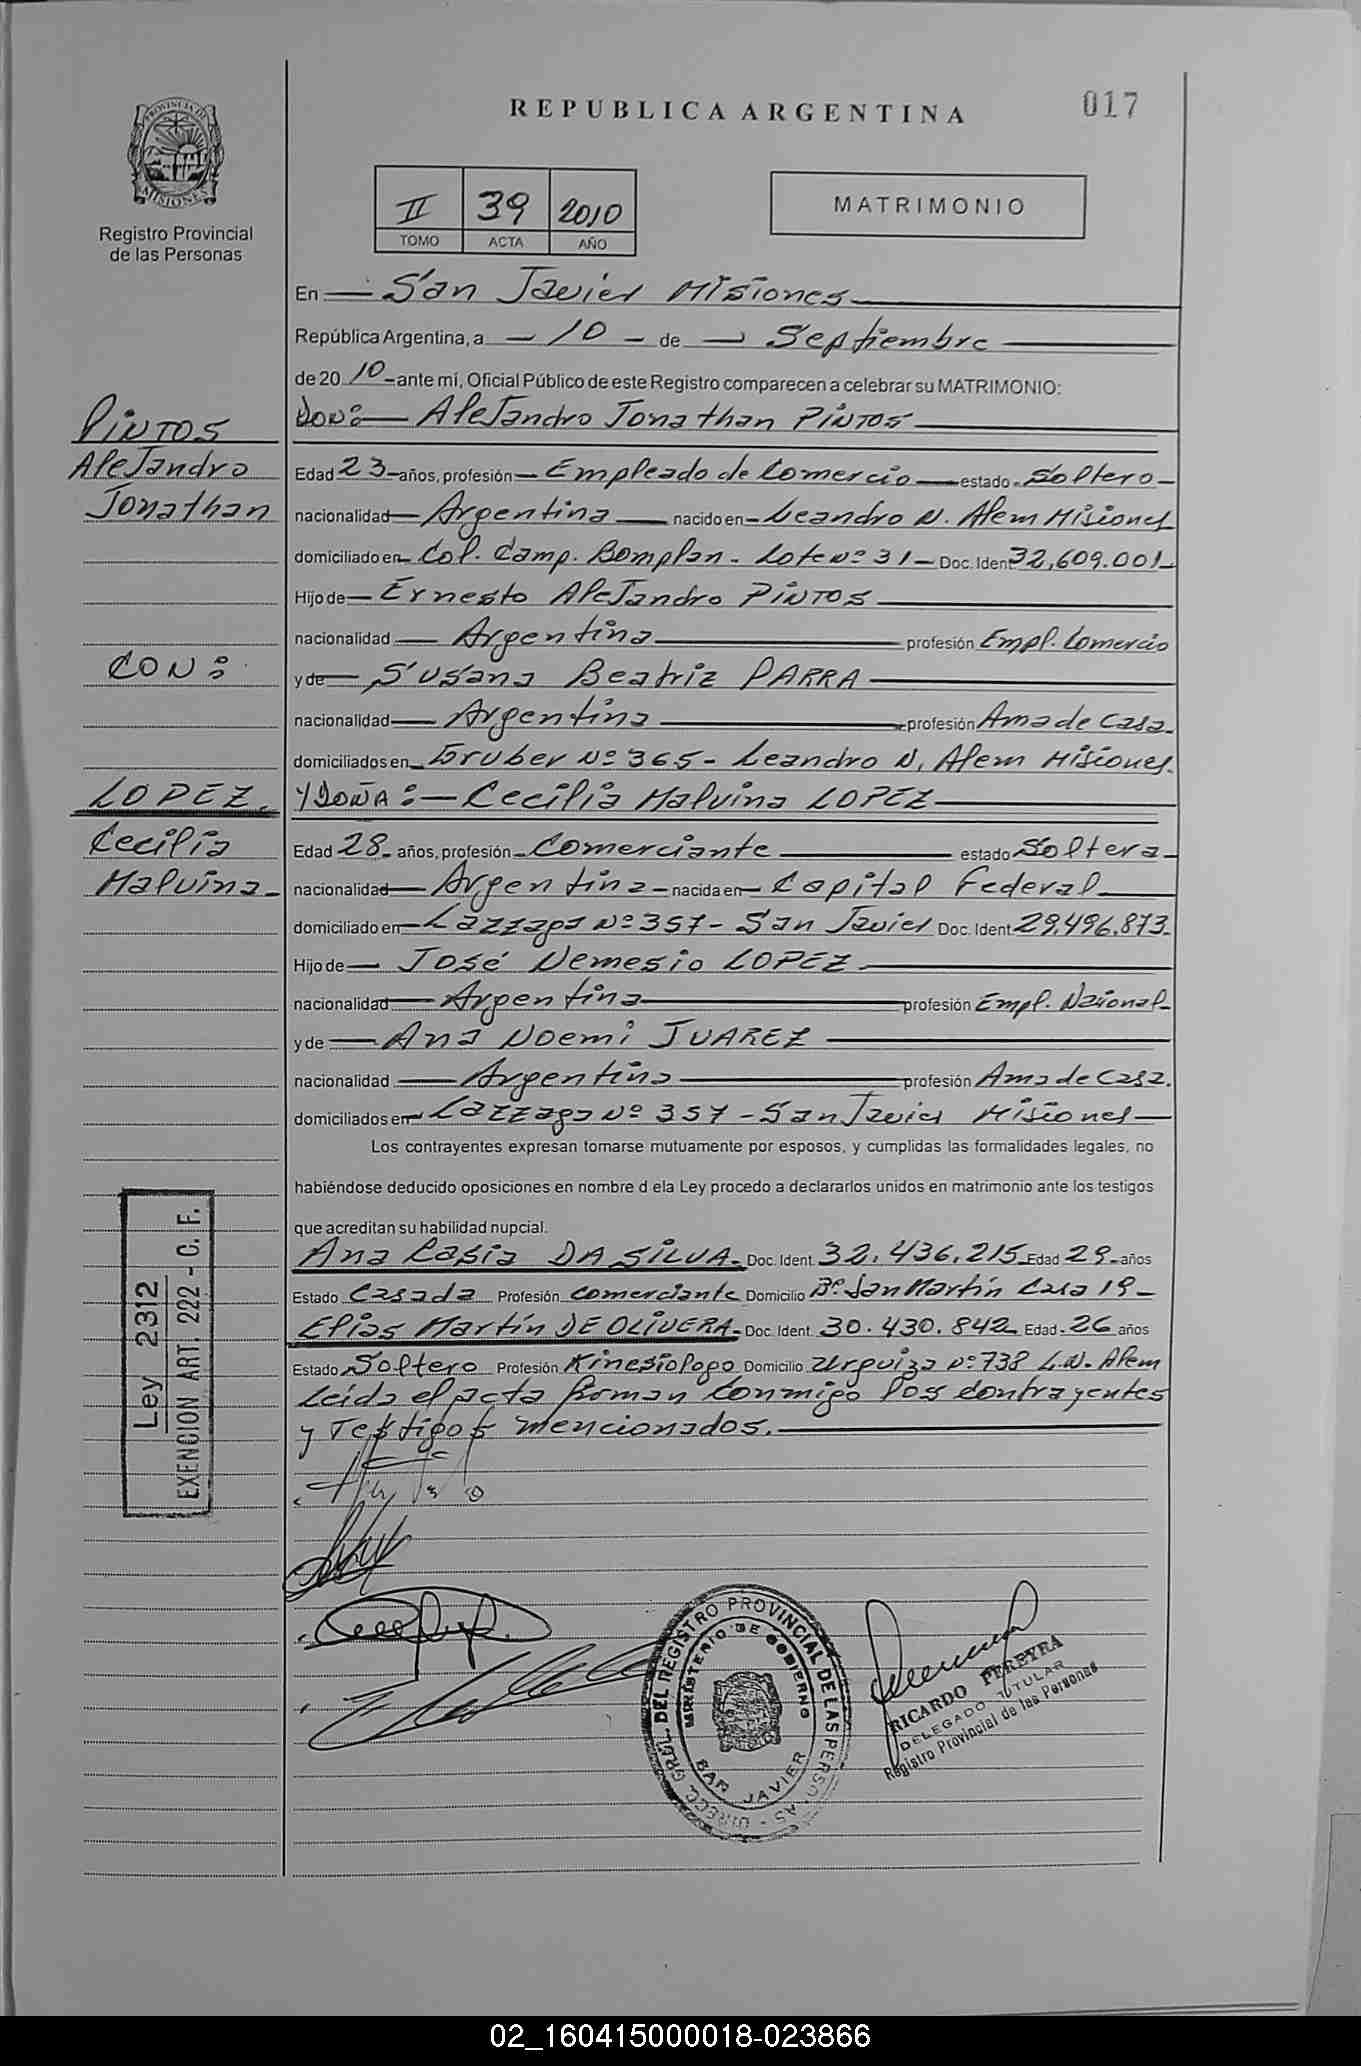 REPUBLICA ARGENTINA
017
PROVINCIA DE
MISIONES
Registro Provincial
de las Personas
II 39 2010
TOMO ACTA AÑO
MATRIMONIO
En San Javier Misiones
República Argentina, a - 10 - de Septiembre
de 20 10 ante mí, Oficial Público de este Registro comparecen a celebrar su MATRIMONIO:
DON: Alejandro Jonathan PINTOS
PINTOS
Alejandro
Jonathan
Edad 23 años, profesión Empleado de Comercio estado Soltero
nacionalidad Argentina nacido en Leandro N. Alem Misiones
domiciliado en Col. Camp. Bomplan - Lote Nº 31 - Doc. Ident 32,609.001
Hijo de Ernesto Alejandro PINTOS
nacionalidad Argentina profesión Empl. Comercio
CON:
y de Susana Beatriz PARRA
nacionalidad Argentina profesión Ama de Casa
domiciliados en Gruber Nº 365 - Leandro N, Alem Misiones.
LOPEZ.
Cecilia
Malvina
Y DOÑA: Cecilia Malvina LOPEZ
Edad 28 años, profesión Comerciante estado Soltera
nacionalidad Argentina nacida en Capital Federal
domiciliado en Lazzaga Nº 357 - San Javier Doc. Ident 29,496,873.
Hijo de José Nemesio LOPEZ
nacionalidad Argentina profesión Empl. Nacional
y de Ana Noemi JUAREZ
nacionalidad Argentina profesión Ama de Casa.
domiciliados en Lazzaga Nº 357 - San Javier Misiones
Los contrayentes expresan tomarse mutuamente por esposos, y cumplidas las formalidades legales, no
habiéndose deducido oposiciones en nombre d ela Ley procedo a declararlos unidos en matrimonio ante los testigos
que acreditan su habilidad nupcial.
Ana Casia DA SILVA. Doc. Ident. 32.436.215 Edad 29 años
Estado Casada Profesión Comerciante Domicilio Bº San Martín Casa 19
Elias Martín DE OLIVERA. Doc. Ident. 30.430.842 Edad 26 años
Estado Soltero Profesión Kinesiologo Domicilio Urquiza Nº 738 L.N. Alem
Leida el acta firman conmigo los contrayentes
y Testigos mencionados.
Ley 2312
EXENCION ART. 222 - C. F.
DIRECC. GRAL. DEL REGISTRO PROVINCIAL DE LAS PERSONAS
MINISTERIO DE GOBIERNO
SAN JAVIER
RICARDO PEREYRA
DELEGADO TITULAR
Registro Provincial de las Personas
02_160415000018-023866